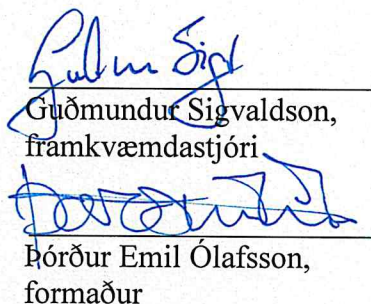 Guðmundur Sigvaldson,
framkvæmdastjóri
Þórður Emil Ólafsson,
formaður